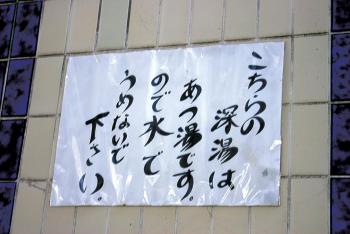 こちらの
深湯は、
あつ湯です。
ので水で
うめないで
下さい。